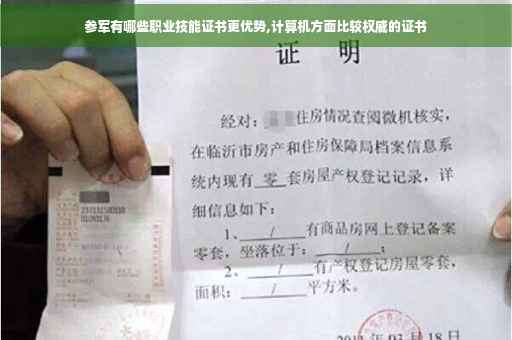 参军有哪些职业技能证书更优势,计算机方面比较权威的证书
证 明
经对: 住房情况查阅微机核实,
在临沂市房产和住房保障局档案信息系
统内现有 零 套房屋产权登记记录,详
细信息如下:
1、 / 有商品房网上登记备案
零套,坐落位于: / ;
2、 / 有产权登记房屋零套,
面积: / 平方米。